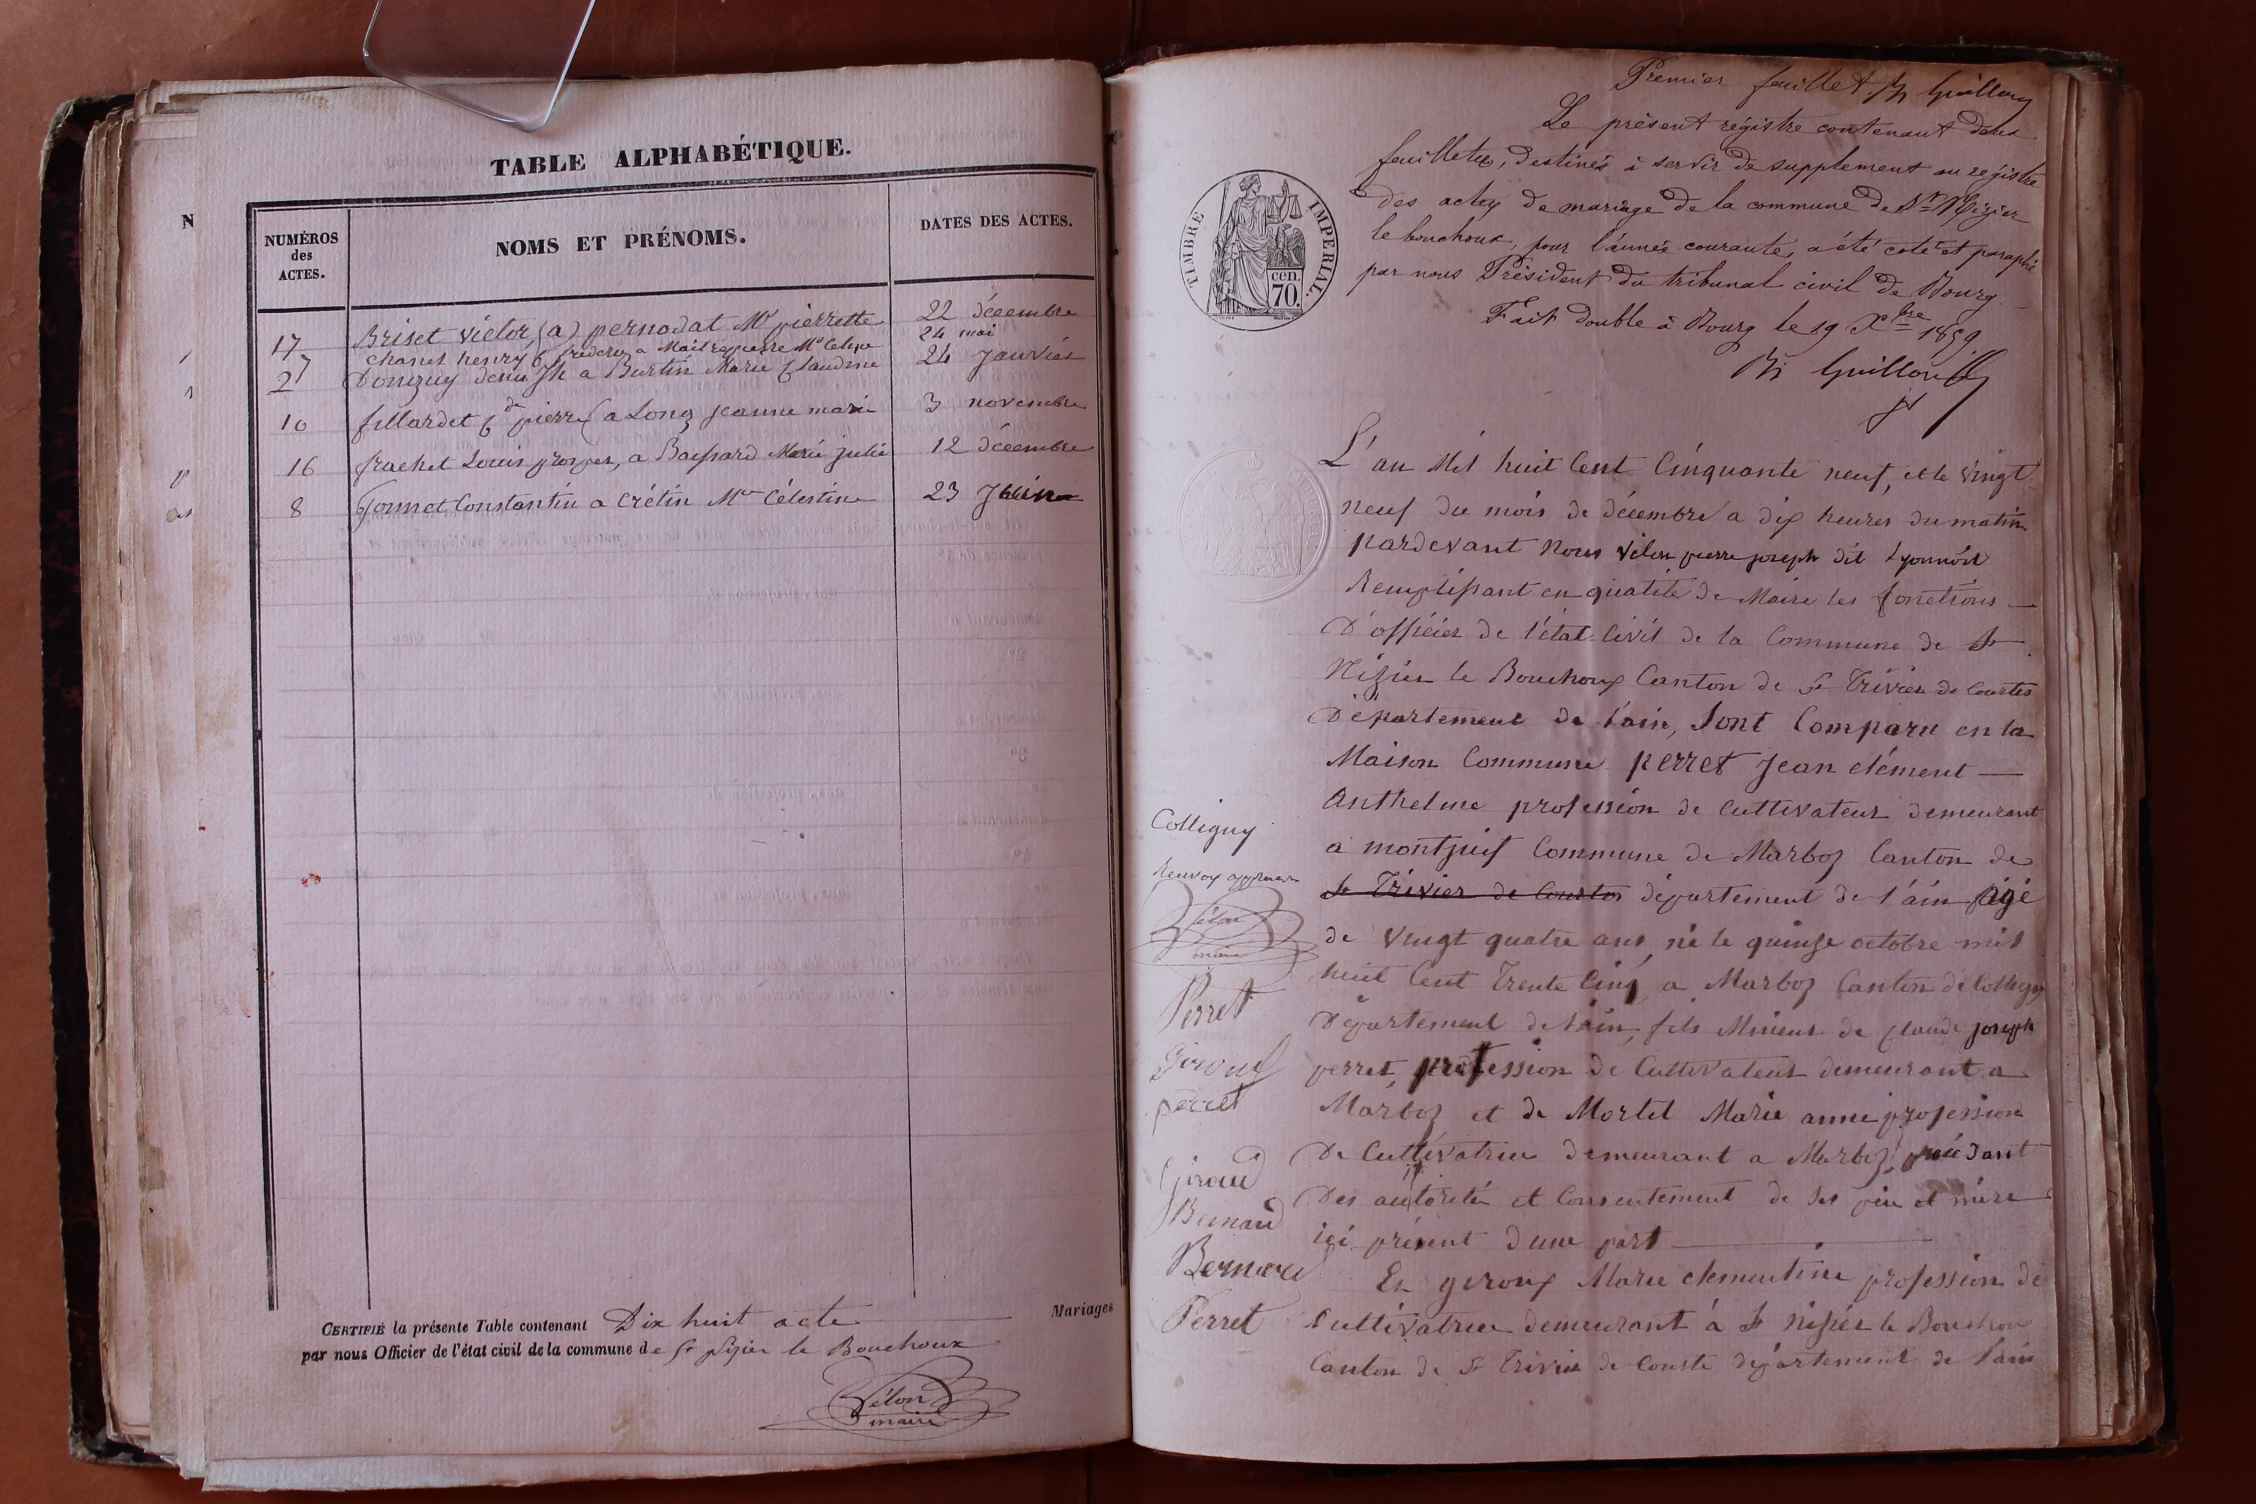 TABLE ALPHABÉTIQUE.
NUMÉROS des ACTES.
NOMS ET PRÉNOMS.
DATES DES ACTES.
17 Briset victor (a) pernodat Mie pierrette 22 décembre
7 Chanel henry a 24 mai
2 Donguy denis Jh a Burtin Marie Claudine 24 Janvier
10 fillardet pierre a Long jeanne marie 3 novembre
16 frachet Louis prosper, a Bassard Marie julie 12 décembre
8 Gonnet Constantin a Crétin Mie Célestine 23 Juin
CERTIFIÉ la présente Table contenant Dix huit acte Mariages
par nous Officier de l'état civil de la commune de St Nizier le Bouchoux
Vélon
maire
N
Premier feuillet. Guillon
Le présent régistre contenant deux
feuillets, destinés à servir de supplement au régistre
des actes de mariage de la commune de St Nizier
le bouchoux, pour l'année courante, a été coté et paraphé
par nous Président du tribunal civil de Bourg
Fait double à Bourg le 19 Xbre 1859
Guillon
TIMBRE IMPERIAL.
cen.
70.
L'an Mil huit Cent Cinquante neuf, et le vingt
neuf du mois de décembre a dix heures du matin
pardevant Nous Vélon pierre joseph dit Lyonnois
Remplissant en qualité de Maire les fonctions
D'officier de l'état Civil de la Commune de St
Nizier le Bouchoux Canton de St Trivier de Courtes
Département de l'ain, Sont Comparu en la
Maison Commune perret Jean clément
Anthelme profession de Cultivateur demeurant
a montjuif Commune de Marboz Canton de
St Trivier de Courtes département de l'ain agé
de vingt quatre ans, né le quinze octobre mil
huit Cent Trente Cinq a Marboz Canton de Colligny
Département de l'ain, fils Mineur de Claude joseph
perret, profession de Cultivateur demeurant a
Marboz et de Mortel Marie anne profession
De Cultivatrice demeurant a Marboz, procédant
Des autorité et Consentement de ses père et mère
ici présent d'une part
Et giroux Marie clementine profession de
Cultivatrice demeurant à St Nizier le Bouchou
Canton de St Trivier de Courte département de l'ain
Colligny
Renvoy approuvé
Vélon
maire
Perret
Giroud
perret
Giroud
Bernard
Bernard
Perret